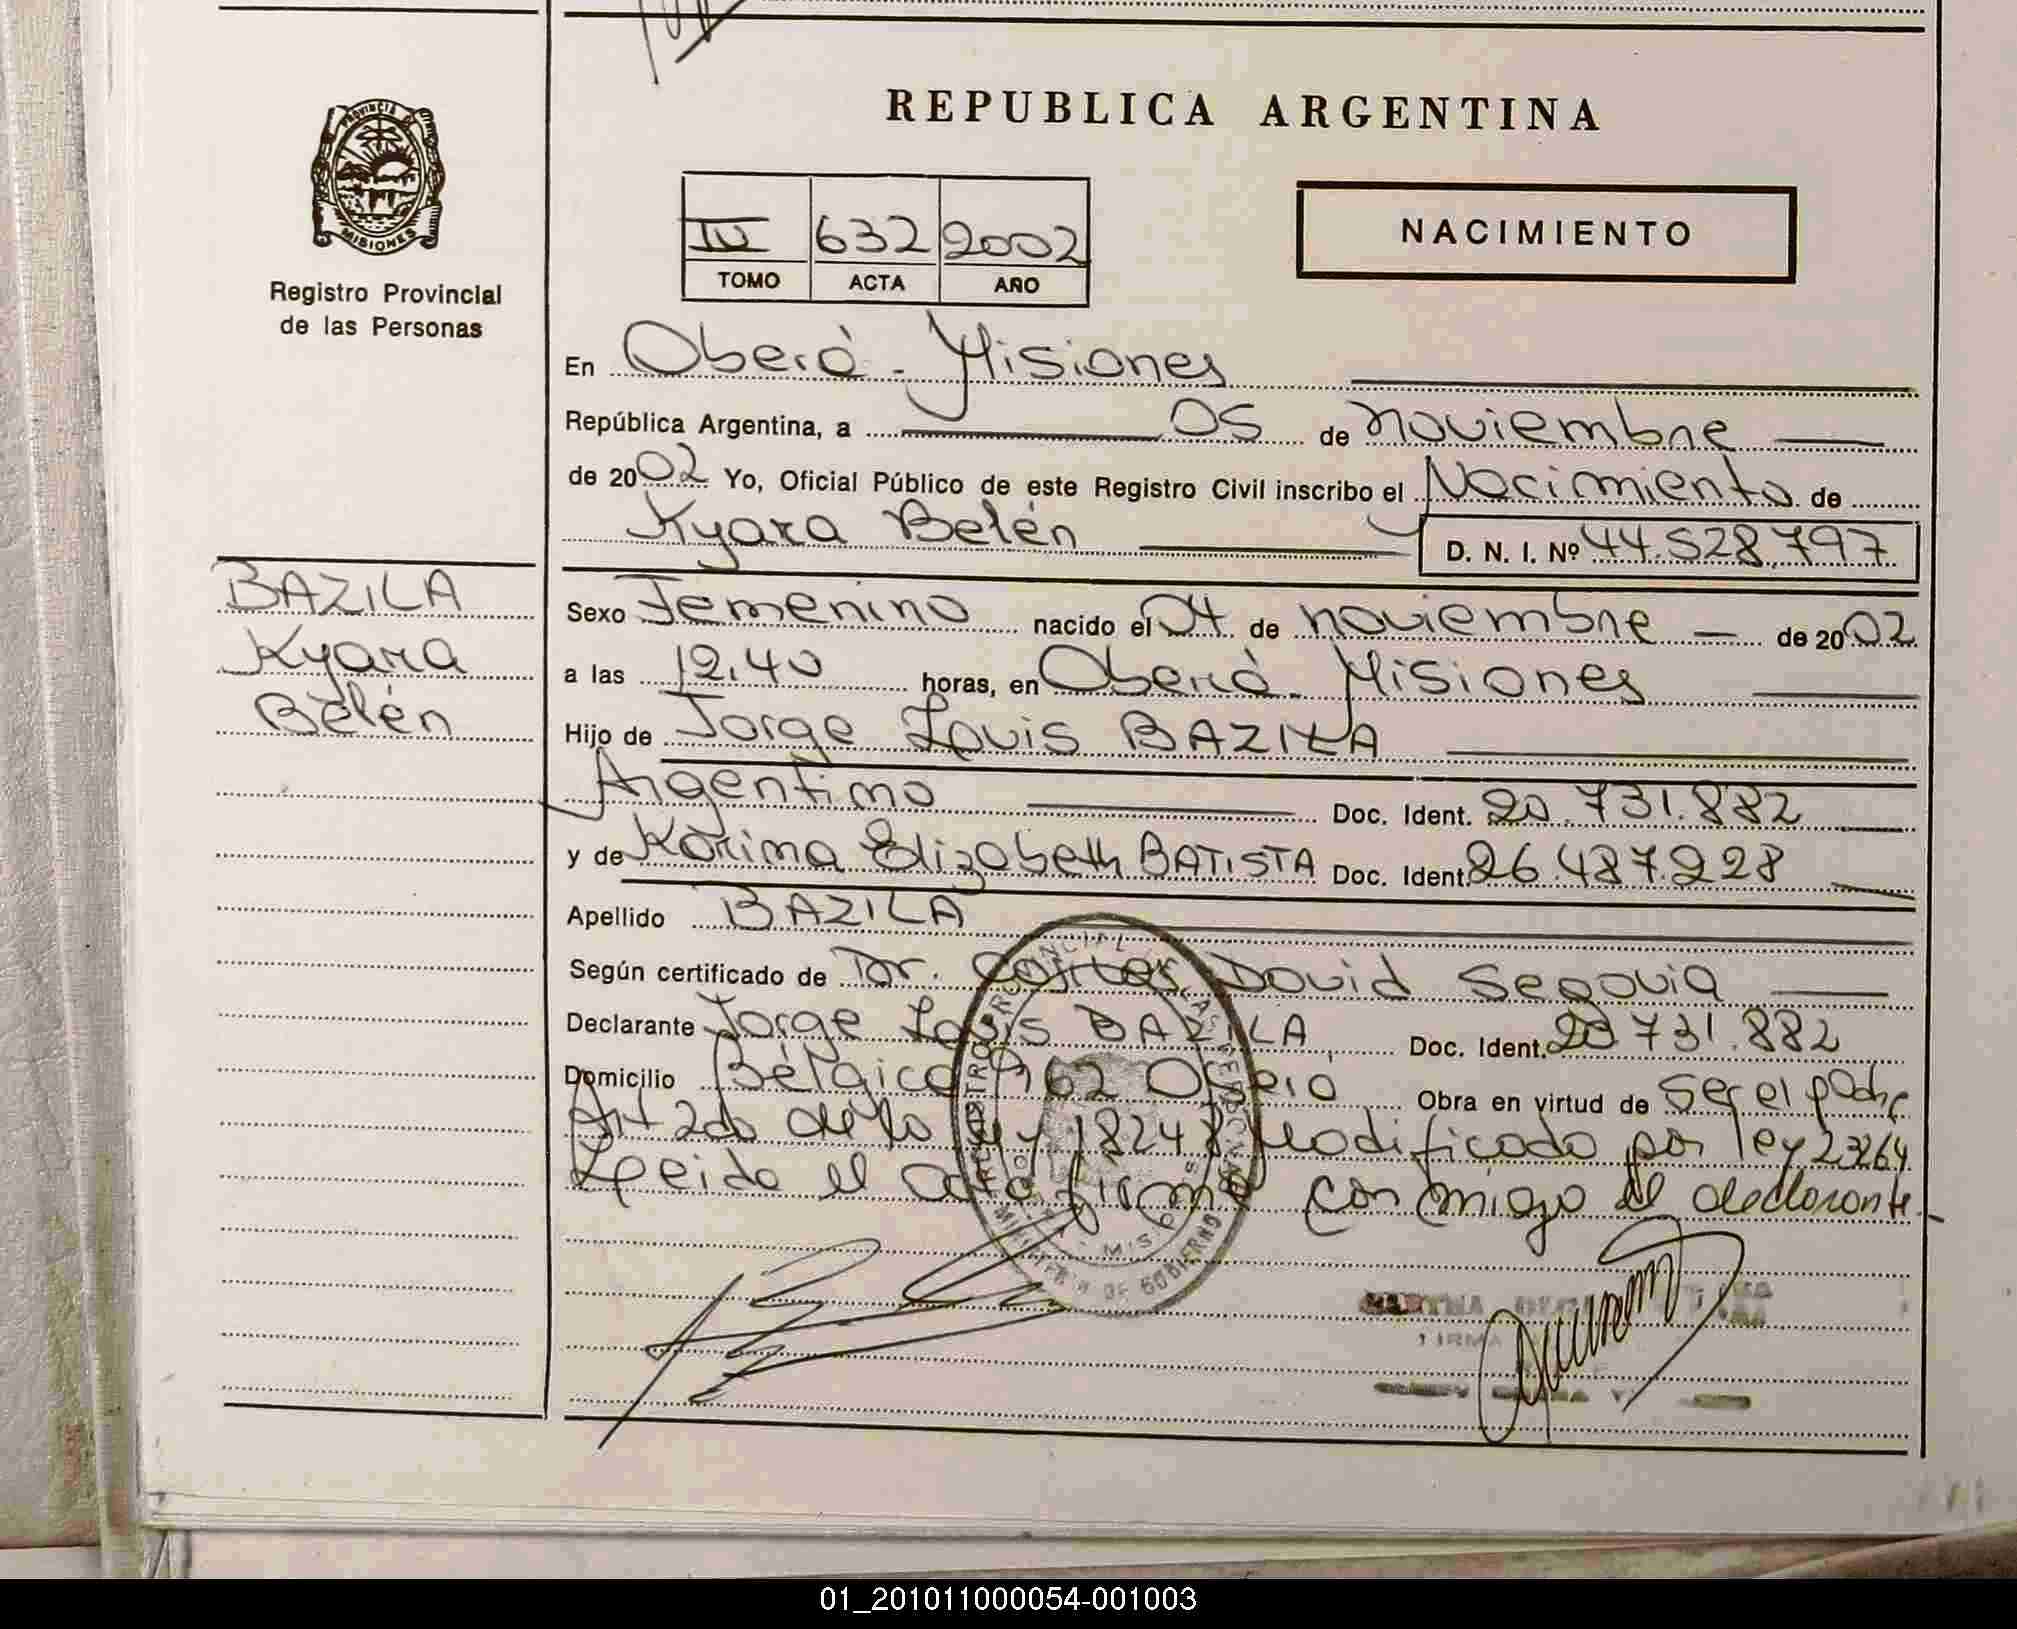 REPUBLICA ARGENTINA
PROVINCIA DE MISIONES
Registro Provincial
de las Personas
IV 632 2002
TOMO ACTA AÑO
NACIMIENTO
En Oberá - Misiones
República Argentina, a 05 de noviembre
de 2002 Yo, Oficial Público de este Registro Civil inscribo el Nacimiento de
Kyara Belén D. N. I. Nº 44.528.797
BAZILA
Kyara
Belén
Sexo Femenino nacido el 04 de noviembre de 2002
a las 12.40 horas, en Oberá - Misiones
Hijo de Jorge Louis BAZILA
Argentino Doc. Ident. 20.731.882
y de Karima Elizabeth BATISTA Doc. Ident. 26.487.228
Apellido BAZILA
Según certificado de Dr. Carlos David Segovia
Declarante Jorge Louis BAZILA, Doc. Ident. 20.731.882
Domicilio Bélgica 962 Oberá Obra en virtud de ser el padre
Art 2do de la ley 18248 modificado por ley 23264
Leida el acta firma conmigo el declarante
MINISTERIO DE GOBIERNO
MISIONES
MARTHA
FIRMA
01_201011000054-001003